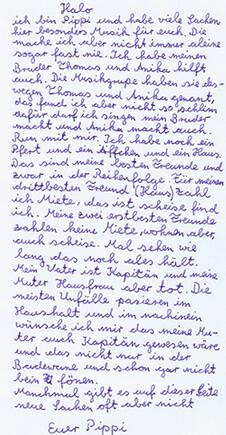 Halo
ich bin Pippi und habe viele Sachen
hier besonders Musik für euch. Die
mache ich aber nicht immer aleine
sogar fast nie. Ich habe meinen
Bruder Thomas und Anika hilft
auch. Die Musikgrupe haben sie des-
wegen Thomas und Anika genant,
das fand ich aber nicht so schlim
dafür darf ich singen mein Bruder
macht und Anika macht auch.
Nun mit mir. Ich habe noch ein
Pfert und ein Äffchen und ein Haus.
Das sind meine besten Freunde und
zwar in der Reihenfolge. Für meinen
drittbesten Freund (Haus) zahl
ich Miete, das ist scheise find
ich. Meine zwei erstbesten Freunde
zahlen keine Miete, wohnen aber,
auch scheise. Mal sehen wie
lang das noch ales hält.
Mein Vater ist Kapitän und meine
Muter Hausfrau aber tot. Die
meisten Unfälle pasieren im
Haushalt und im nachinein
wünsche ich mir das meine Mu-
ter auch Kapitän gewesen wäre
und das nicht nur in der
Badewane und schon gar nicht
bein fönen.
Manchmal gibt es auf dieser Seite
neue Sachen oft aber nicht
Euer Pippi